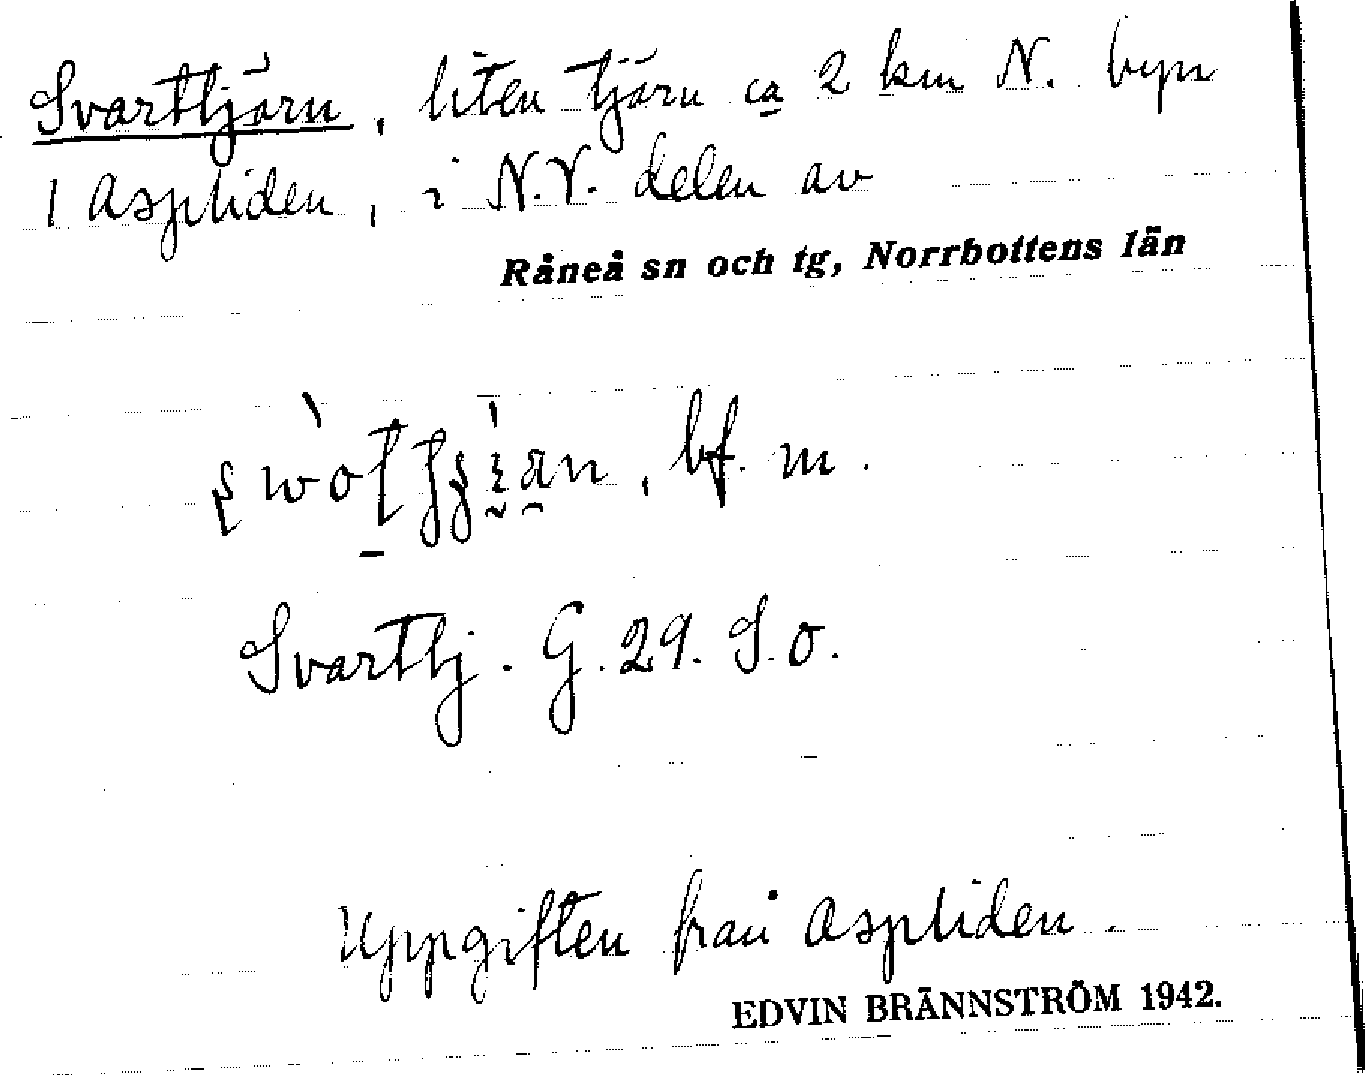 Svarttjärn, liten tjärn ca 2 km N. byn
1 Aspliden, i N.V. delen av
Råneå sn och tg, Norrbottens län
bf. m.
Svarttj. G. 29. S.o.
Uppgiften från Aspliden.
EDVIN BRÄNNSTRÖM 1942.